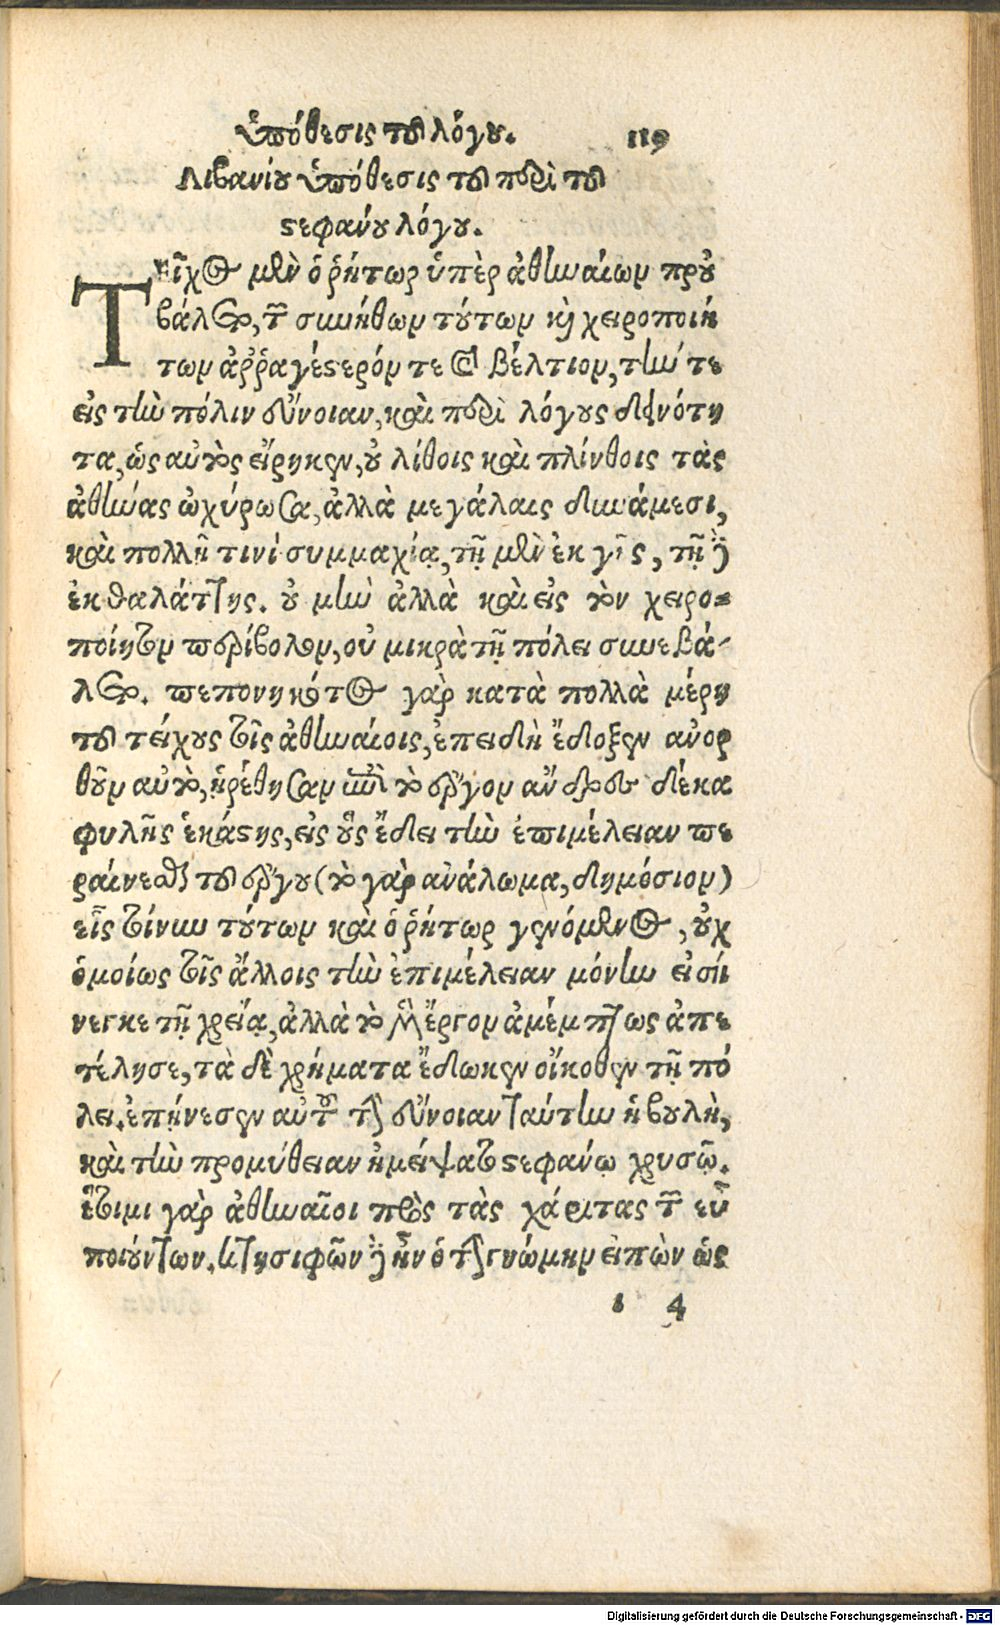 ὑπόθεσις τοῦ λόγου. 119
Λιβανίου ὑπόθεσις τοῦ περὶ τοῦ
στεφάνου λόγου.
Τεῖχος μὲν ὁ ῥήτωρ ὑπὲρ ἀθηναίων προὐ
βάλετο, τῶν συνήθων τούτων καὶ χειροποιή
των ἀῤῥαγέστερόν τε καὶ βέλτιον, τήν τε
εἰς τὴν πόλιν εὔνοιαν, καὶ περὶ λόγους δεινότη
τα, ὡς αὐτὸς εἴρηκεν, οὐ λίθοις καὶ πλίνθοις τὰς
ἀθήνας ὠχύρωσα, ἀλλὰ μεγάλαις δυνάμεσι,
καὶ πολλῇ τινί συμμαχίᾳ, τῇ μὲν ἐκ γῆς, τῇ δὲ
ἐκ θαλάττης. οὐ μὴν ἀλλὰ καὶ εἰς τὸν χειρο=
ποίητον περίβολον, οὐ μικρὰ τῇ πόλει συνεβά-
λετο. πεπονηκότος γὰρ κατὰ πολλὰ μέρη
τοῦ τείχους τοῖς ἀθηναίοις, ἐπειδὴ ἔδοξεν ἀνορ
θοῦν αὐτὸ, ᾑρέθησαν ἐπὶ τὸ ἔργον ἄνδρες δέκα
φυλῆς ἑκάστης, εἰς οὓς ἔδει τὴν ἐπιμέλειαν πε
ραίνεσθαι τοῦ ἔργου (τὸ γὰρ ἀνάλωμα, δημόσιον)
εἷς τοίνυν τούτων καὶ ὁ ῥήτωρ γενόμενος, οὐχ
ὁμοίως τοῖς ἄλλοις τὴν ἐπιμέλειαν μόνην εἰσή
νεγκε τῇ χρείᾳ, ἀλλὰ τὸ μὲν ἔργον ἀμέμπτως ἀπε
τέλησε, τὰ δὲ χρήματα ἔδωκεν οἴκοθεν τῇ πό
λει. ἐπῄνεσεν αὐτοῦ τὴν εὔνοιαν ταύτην ἡ βουλὴ,
καὶ τὴν προμύθειαν ἠμείψατο στεφάνῳ χρυσῷ.
ἕτοιμι γὰρ ἀθηναῖοι πρὸς τὰς χάριτας τῶν εὖ
ποιούντων. κτησιφῶν δὲ ἦν ὁ τὴν γνώμην εἰπὼν ὡς
1 4
Digitalisierung gefördert durch die Deutsche Forschungsgemeinschaft - DFG